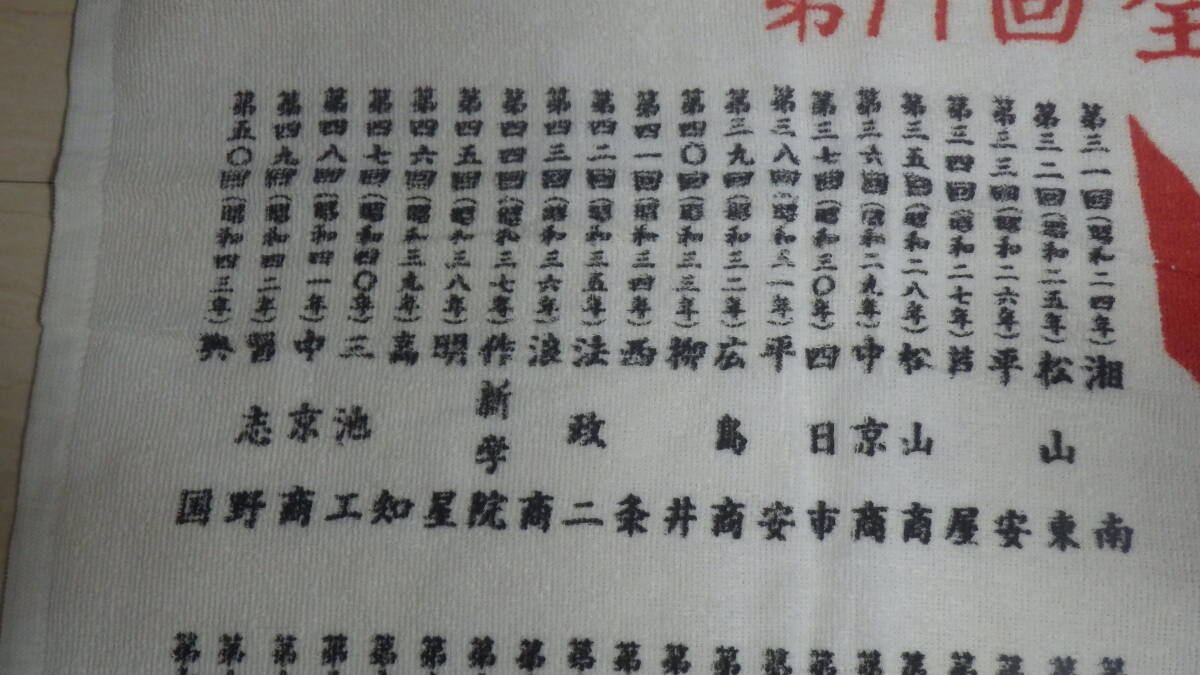 第71回全
第三一回(昭和二四年)湘南
第三二回(昭和二五年)松山東
第三三回(昭和二六年)平安
第三四回(昭和二七年)芦屋
第三五回(昭和二八年)松山商
第三六回(昭和二九年)中京商
第三七回(昭和三〇年)四日市
第三八回(昭和三一年)平安
第三九回(昭和三二年)広島商
第四〇回(昭和三三年)柳井
第四一回(昭和三四年)西条
第四二回(昭和三五年)法政二
第四三回(昭和三六年)浪商
第四四回(昭和三七年)作新学院
第四五回(昭和三八年)明星
第四六回(昭和三九年)高知
第四七回(昭和四〇年)三池工
第四八回(昭和四一年)中京商
第四九回(昭和四二年)習志野
第五〇回(昭和四三年)興国
第 第 第 第 第 第 第 第 第 第 第 第 第 第 第 第 第 第 第 第